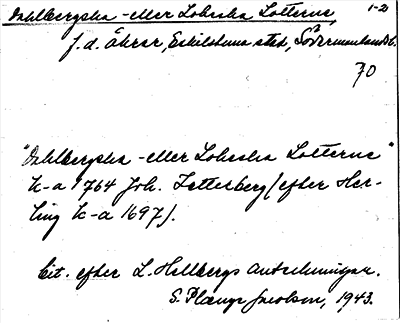 Dahlbergska - eller Loheska Lotterna, 1-2)
f.d. åkrar, Eskilstuna stad, Södermanlands l.
70
"Dahlbergska - eller Loheska Lotterna"
k-a 1764 Joh. Zettesberg (efter Her-
ling k-a 1697).
Cit. efter L. Hellbergs anteckningar.
S. Plænge Jacobson, 1943.